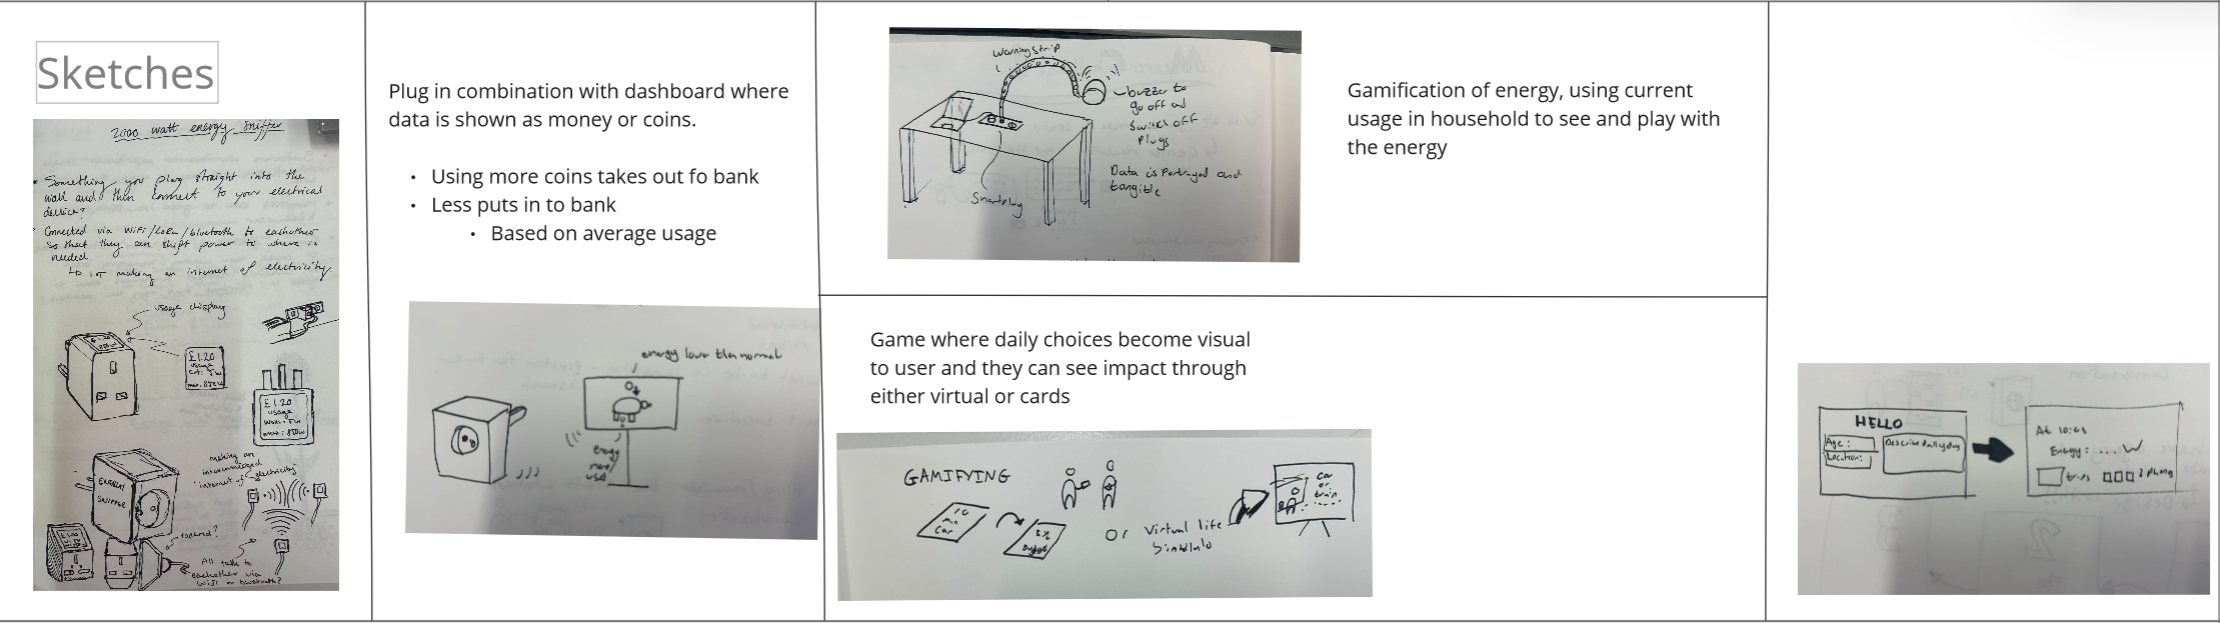 Sketches
2000 watt energy sniffer
Something you plug straight into the
wall and then connect to your electrical
device?
Connected via WiFi/LoRa/bluetooth to eachother
so that they can shift power to where is
needed
↳ IoT making an internet of electricity
usage display
£1.20
usage
max: 850w
£1.20
usage
max: 850w
making an
interconnected
"internet of electricity"
ENERGY
SNIFFER
All talk to
eachother via
WiFi or bluetooth?
Plug in combination with dashboard where
data is shown as money or coins.
• Using more coins takes out fo bank
• Less puts in to bank
• Based on average usage
energy lower than normal
energy
more
used
Warning Strip
buzzer to
go off and
Switch off
plugs
Data is Portrayed and
tangible
Smartplug
Gamification of energy, using current
usage in household to see and play with
the energy
Game where daily choices become visual
to user and they can see impact through
either virtual or cards
GAMIFYING
10
min
car
Or Virtual life
car
or
train
HELLO
Age:
Location:
Describe daily day
At 10:45
Energy: ... W